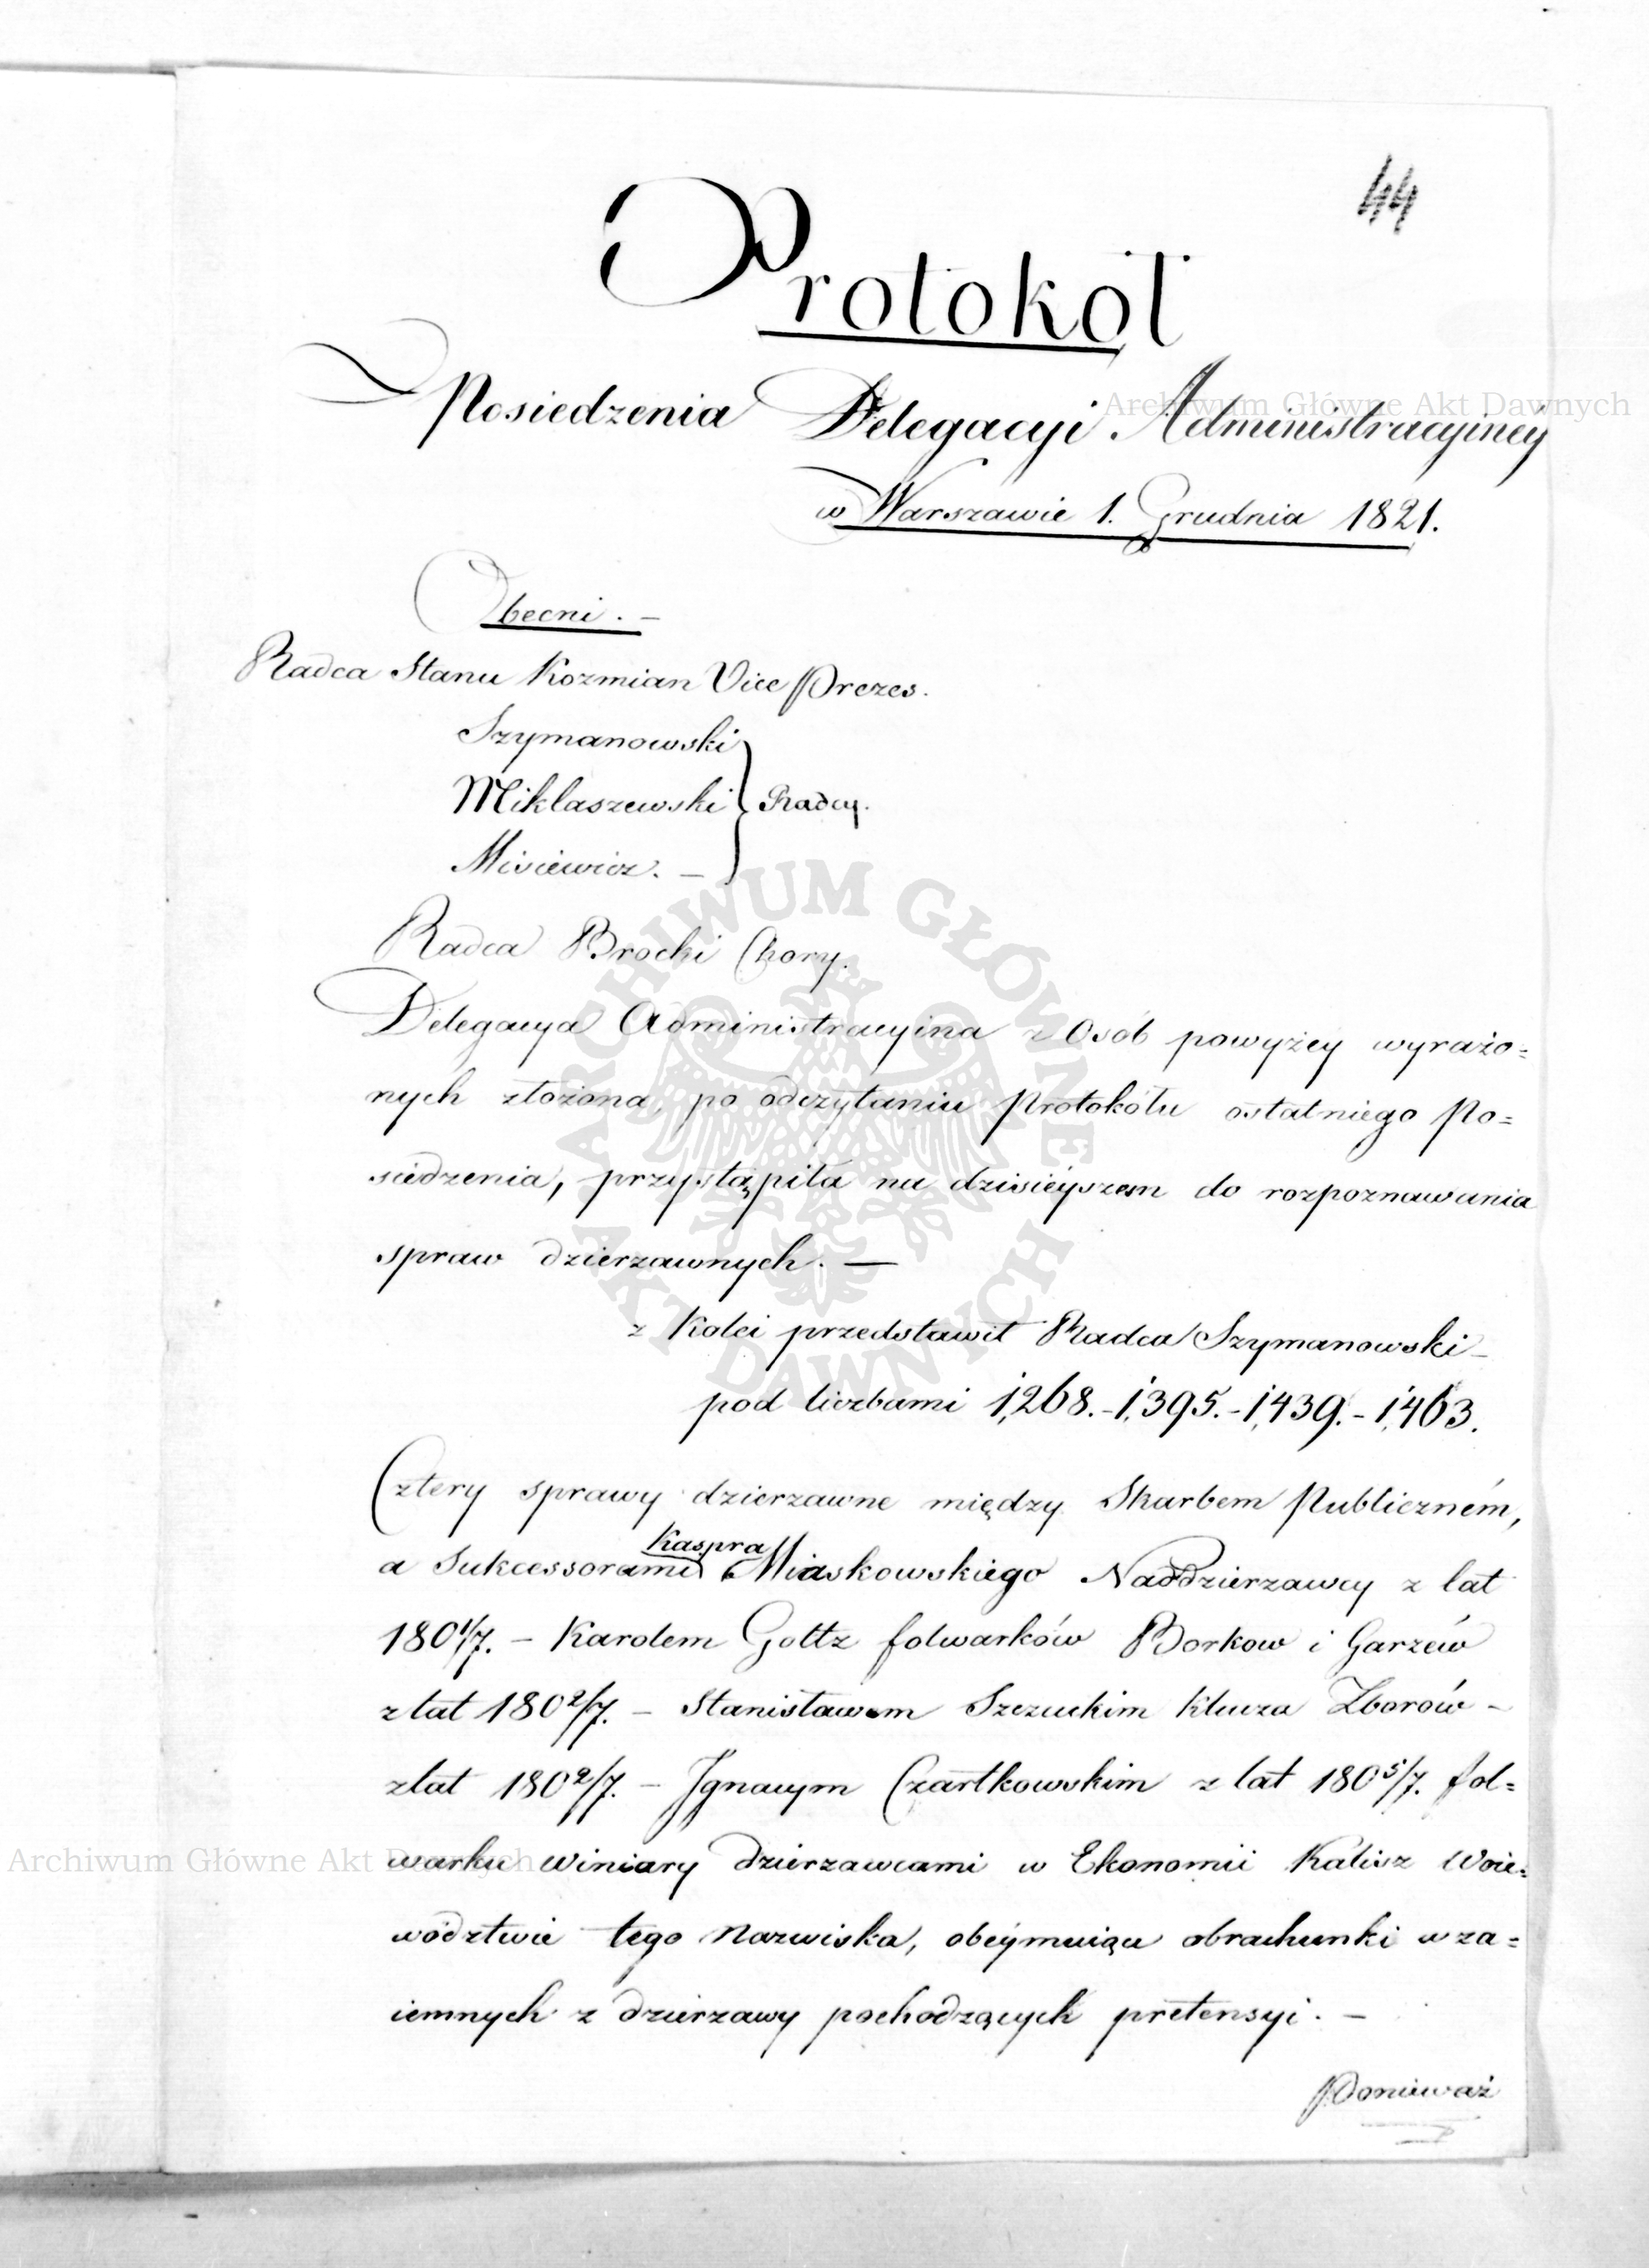 44
Protokół
Posiedzenia Delegacyi Administracyiney
w Warszawie 1. Grudnia 1821.
Obecni. –
Radca Stanu Kozmian Vice Prezes.
Szymanowski
Miklaszewski } Radcy.
Misiewicz. –
Radca Brocki Chory.
Delegacya Administracyina z Osób powyżey wyrażo=
nych złożona, po odczytaniu Protokółu ostatniego Po=
siedzenia, przystąpiła na dzisieyszem do rozpoznawania
spraw dzierzawnych. —
z Kolei przedstawił Radca Szymanowski –
pod liczbami 1,268. – 1,395. – 1,439. – 1,463.
Cztery sprawy dzierzawne między Skarbem Publiczném,
a Sukcessorami Kaspra Miaskowskiego Naddzierzawcy z lat
180 1/7. – Karolem Goltz folwarków Borkow i Garzew
z lat 180 2/7. – Stanisławem Szczuckim Klucza Zborów –
z lat 180 2/7. – Jgnacym Czartkowskim z lat 180 5/7. fol=
warku Winiary dzierzawcami w Ekonomii Kalisz Woie=
wództwie tego Nazwiska, obeymuiące obrachunki wza=
iemnych z dzierzawy pochodzących pretensyi. –
Ponieważ
Archiwum Główne Akt Dawnych
Archiwum Główne Akt Dawnych
ARCHIWUM GŁÓWNE AKT DAWNYCH